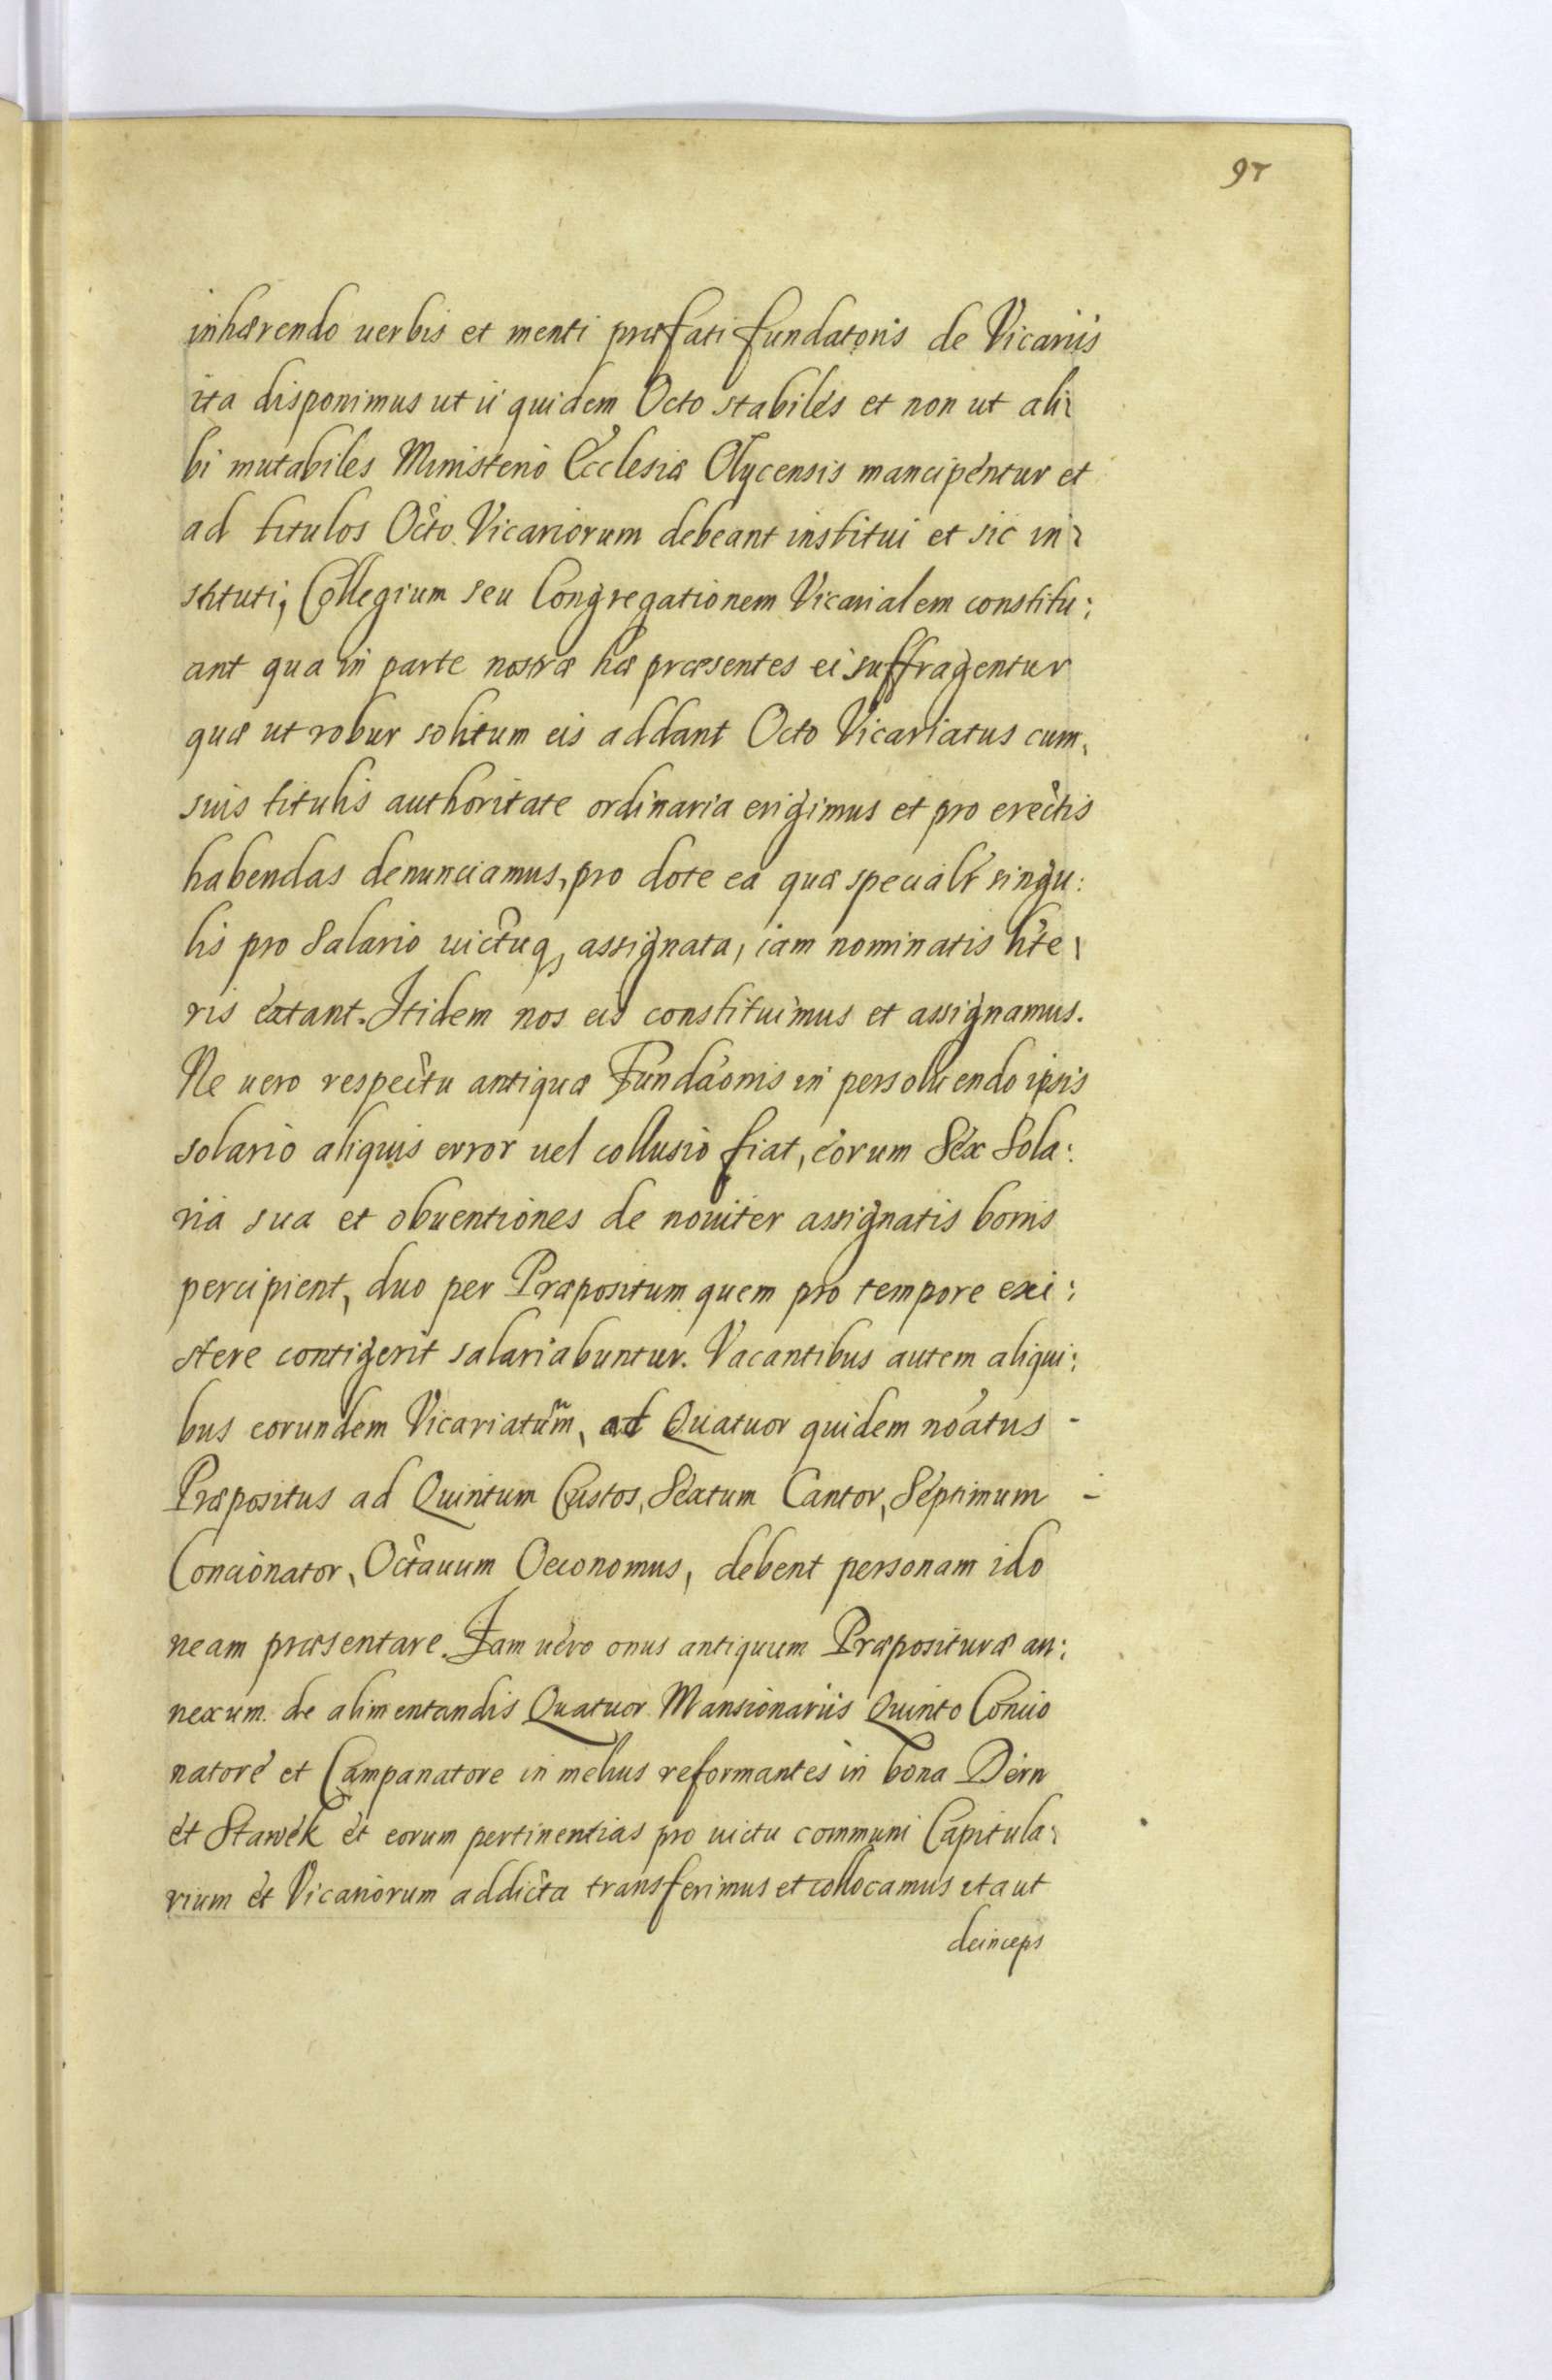 97
inhærendo uerbis et menti præfati fundatoris de Vicariis
ita disponimus ut ii quidem Octo stabiles et non ut ali:
bi mutabiles Ministerio Ecclesiæ Olycensis mancipentur et
ad titulos Octo Vicariorum debeant institui et sic in:
stituti, Collegium seu Congregationem Vicarialem constitu:
ant qua in parte nostræ hæ præsentes ei suffragentur
quæ ut robur solitum eis addant Octo Vicariatus cum,
suis titulis authoritate ordinaria erigimus et pro erectis
habendas denunciamus, pro dote ea quæ specialr singu:
lis pro Salario uictuq, assignata, iam nominatis lite:
ris extant. Itidem nos eis constituimus et assignamus.
Ne uero respectu antiquæ Fundaonis in persoluendo ipsis
solario aliquis error uel collusio fiat, eorum Sex Sola:
ria sua et obuentiones de nouiter assignatis bonis
percipient, duo per Præpositum quem pro tempore exi:
stere contigerit salariabuntur. Vacantibus autem aliqui:
bus eorundem Vicariatum, ad Quatuor quidem noatus -
Præpositus ad Quintum Custos, Sextum Cantor, Septimum -
Concionator, Octauum Oeconomus, debent personam ido
neam præsentare. Iam uero onus antiquum Præposituræ an:
nexum de alimentandis Quatuor Mansionariis Quinto Concio
natore et Campanatore in melius reformantes in bona Dern
et Stawek et eorum pertinentias pro uictu communi Capitula:
rium et Vicariorum addicta transferimus et collocamus ita ut
deinceps